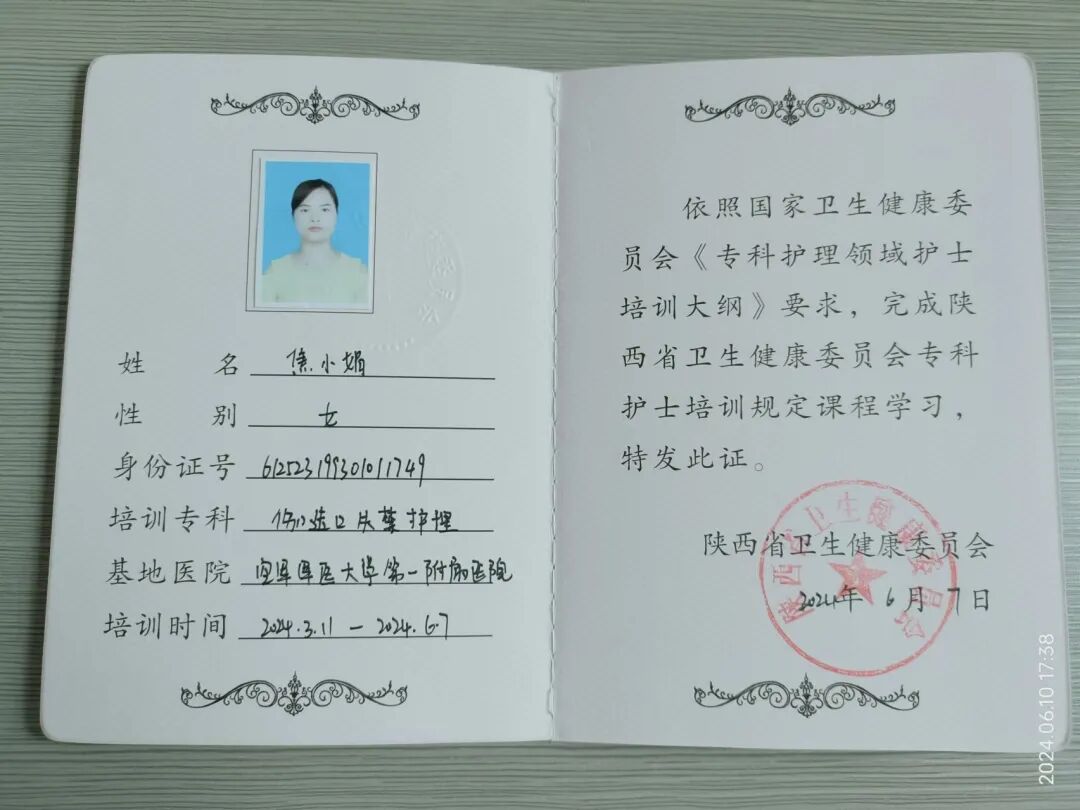 姓名 焦小娟
性别 女
身份证号 612523199301011749
培训专科 伤口造口失禁护理
基地医院 空军军医大学第一附属医院
培训时间 2024.3.11 — 2024.6.7
依照国家卫生健康委
员会《专科护理领域护士
培训大纲》要求，完成陕
西省卫生健康委员会专科
护士培训规定课程学习，
特发此证。
陕西省卫生健康委员会
2024年 6月 7日
陕西省卫生健康委员会
2024.06.10 17:38